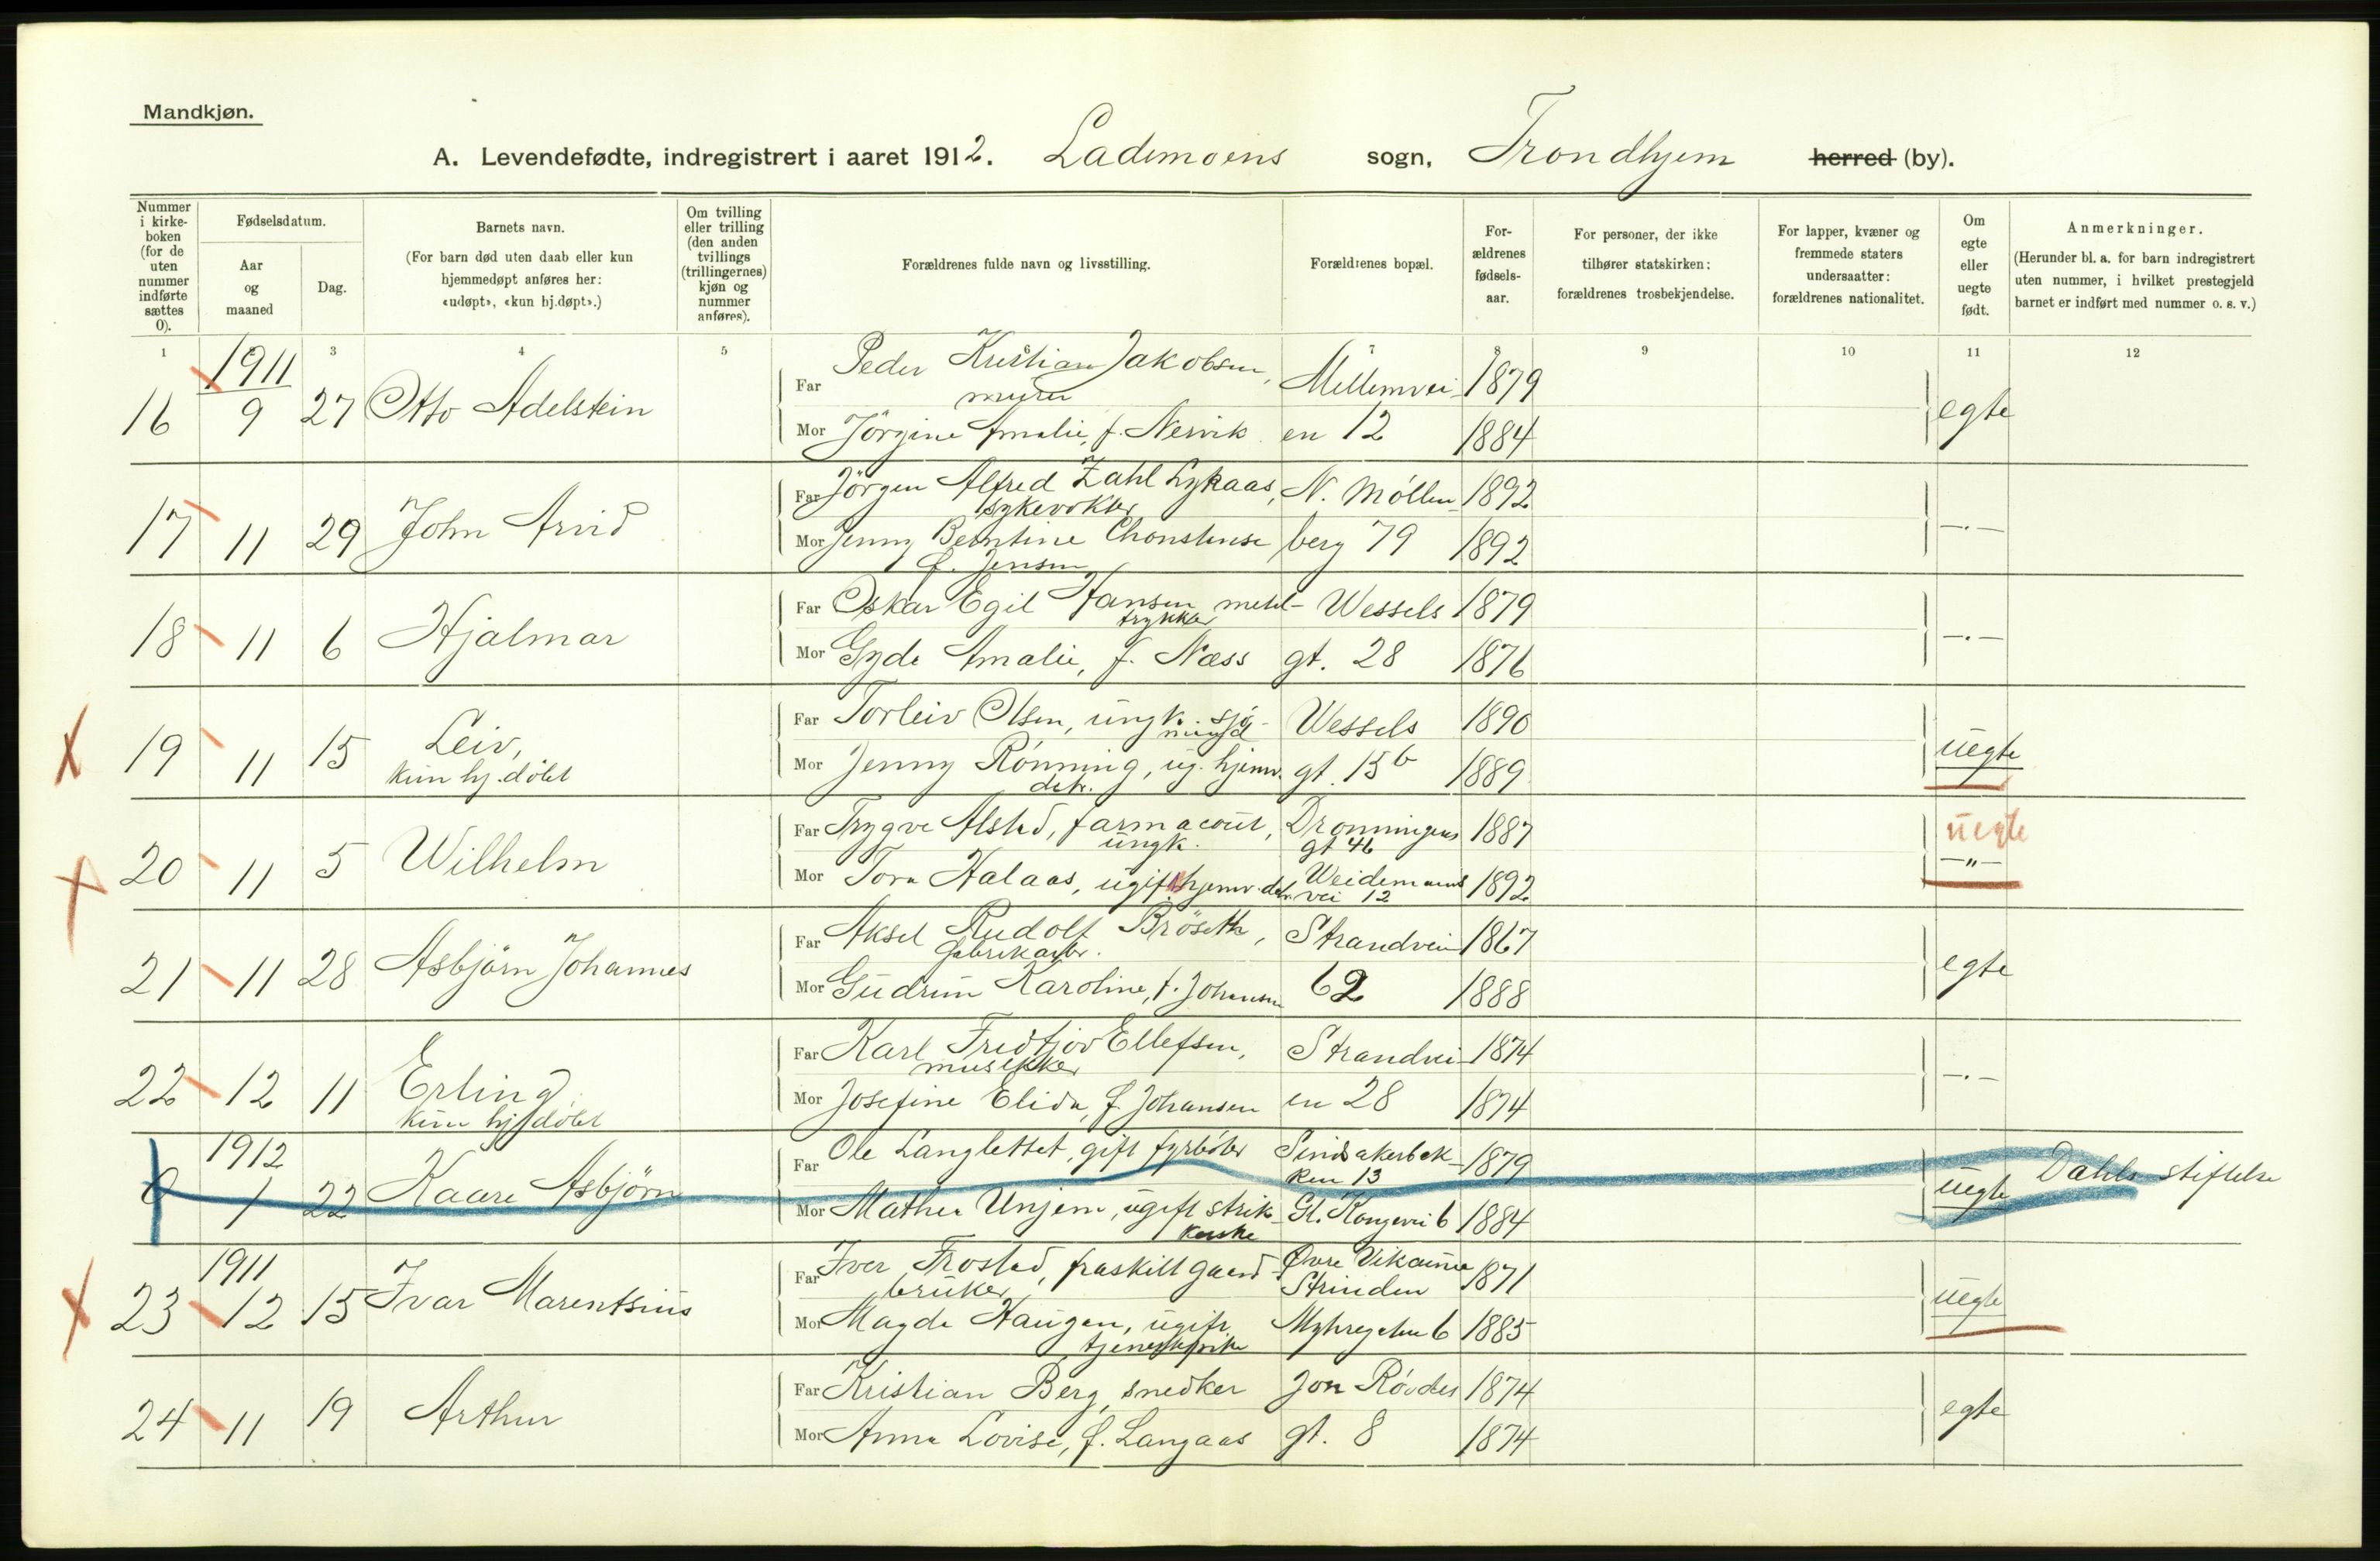 Mandkjøn.
A. Levendefødte, indregistrert i aaret 1912. Lademoens sogn, Trondhjem herred (by).
Nummer i kirkeboken (for de uten nummer indførte sættes 0).
Fødselsdatum.
Aar og maaned
Dag.
Barnets navn.
(For barn død uten daab eller kun hjemmedøpt anføres her: «udøpt», «kun hj.døpt».)
Om tvilling eller trilling (den anden tvillings (trillingernes) kjøn og nummer anføres).
Forældrenes fulde navn og livsstilling.
Forældrenes bopæl.
Forældrenes fødselsaar.
For personer, der ikke tilhører statskirken: forældrenes trosbekjendelse.
For lapper, kvæner og fremmede staters undersaatter: forældrenes nationalitet.
Om egte eller uegte født.
Anmerkninger.
(Herunder bl. a. for barn indregistrert uten nummer, i hvilket prestegjeld barnet er indført med nummer o. s. v.)
1 2 3 4 5 6 7 8 9 10 11 12
1911
16 9 27 Otto Adelstein
Far Peder Kristian Jakobsen, murer Mellemvei- 1879
Mor Jörgine Amalie, f. Nesvik en 12 1884
egte
17 11 29 John Arvid
Far Jörgen Alfred Zahl Lykaas, sykevokter N. Möllen- 1892
Mor Jenny Berntine f. Jensen berg 79 1892
—.—
18 11 6 Hjalmar
Far Oskar Egil Hansen metal-trykker Wessels 1879
Mor Gyda Amalie, f. Næss gt. 28 1876
—.—
19 11 15 Leiv, kun hj.döbt
Far Torleiv Olsen, ungk. sjö-mand Wessels 1890
Mor Jenny Rönning, ug. hjemv. datr. gt. 15b 1889
uegte
20 11 5 Wilhelm
Far Trygve Alstad, farmaceut, ungk. Dronningens gt 46 1887
Mor Tora Halaas, ugift hjemv. datr. Weidemanns vei 12 1892
uegte
—"—
21 11 28 Asbjörn Johannes
Far Aksel Rudolf Bröseth, fabrikarb. Strandveien 1867
Mor Gudrun Karoline, f. Johansen 62 1888
egte
22 12 11 Erling kun hj.döbt
Far Karl Fredtjov Ellefsen, musikker Strandvei- 1874
Mor Josefine Elida, f. Johansen en 28 1874
—.—
1912
0 1 22 Kaare Asbjörn
Far Ole Langlettet, gift fyrböter Sindsakerbak-ken 13 1879
Mor Mathea Unjem, ugift strik-kerske Gl. Kongevei 6 1884
uegte Dahls stiftelse
1911
23 12 15 Ivar Marentsius
Far Iver Frostad, fraskilt gaard-bruker Øvre Vikaune Strinden 1871
Mor Magda Haugen, ugift tjenestepike 6 1885
uegte
24 11 19 Arthur
Far Kristian Berg, snedker Jon Rövdes 1874
Mor Anna Lovise, f. Langaas gt. 8 1874
egte